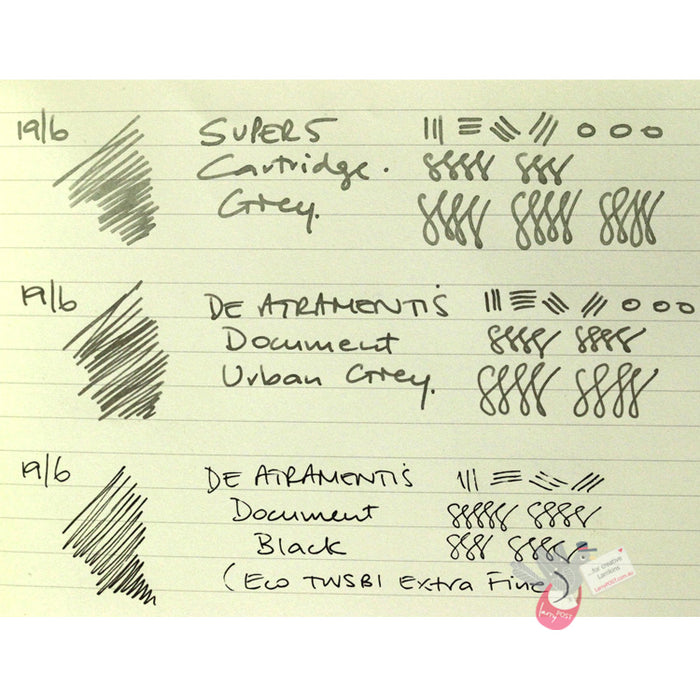 19/6 SUPER5
Cartridge.
Grey.
19/6 DE ATRAMENTIS
Document
Urban Grey.
19/6 DE ATRAMENTIS
Document
Black
(Eco TWSBI Extra Fine)
...for creative
Larrikins
LarryPOST.com.au
larry POST